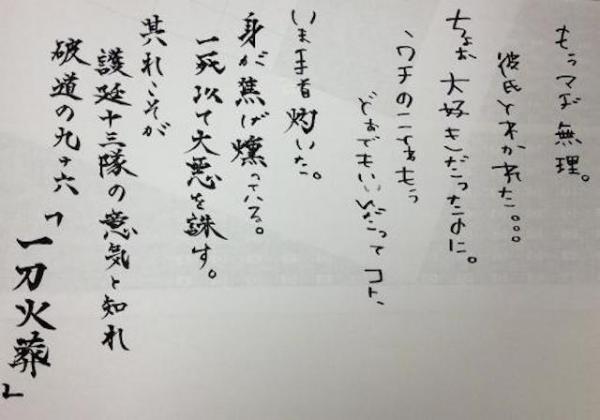 もぅマヂ無理。
彼氏とゎかれた。。。
ちょぉ大好きだったのに。
、ウチのことゎもぅ
どぉでもいいんだってコト、
いま手首灼いた。
身が焦げ燻っている。
一死以て大悪を誅す。
其れこそが
護廷十三隊の意気と知れ
破道の九十六
「一刀火葬」